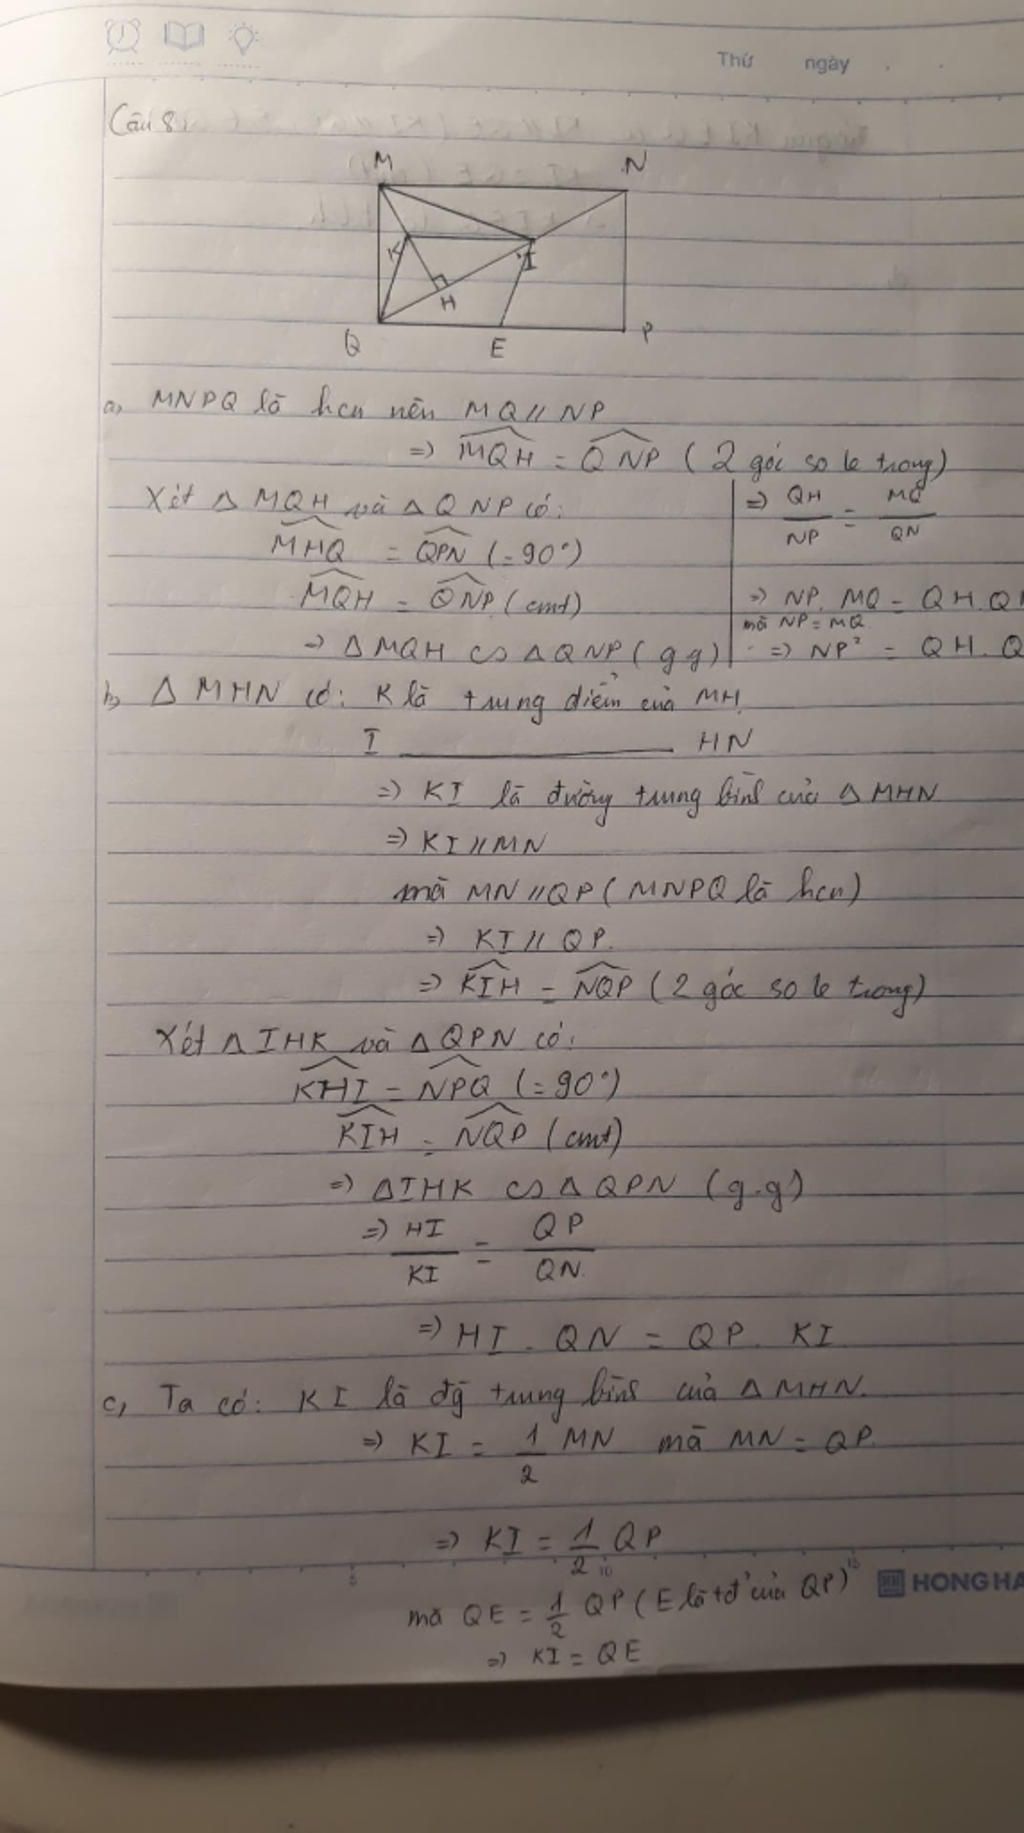 Thứ ngày
Câu 8:
M N
K I
H
Q E P
a, MNPQ là hcn nên MQ // NP
=> MQH = QNP (2 góc so le trong)
Xét Δ MQH và Δ QNP có:
MHQ = QPN (=90°)
MQH = QNP (cmt)
=> Δ MQH ∽ Δ QNP (gg)
=> QH/NP = MQ/QN
=> NP. MQ = QH. Q
mà NP = MQ
=> NP² = QH. Q
b, Δ MHN có: K là trung điểm của MH
I ———— HN
=> KI là đường trung bình của Δ MHN
=> KI // MN
mà MN // QP (MNPQ là hcn)
=> KI // QP.
=> KIH = NQP (2 góc so le trong)
Xét Δ IHK và Δ QPN có:
KHI = NPQ (=90°)
KIH = NQP (cmt)
=> Δ IHK ∽ Δ QPN (g.g)
=> HI/KI = QP/QN.
=> HI . QN = QP. KI
c, Ta có: KI là đg trung bình của Δ MHN.
=> KI = 1/2 MN mà MN = QP
=> KI = 1/2 QP
5 10 15
mà QE = 1/2 QP (E là tđ của QP)
HONG HA
=> KI = QE